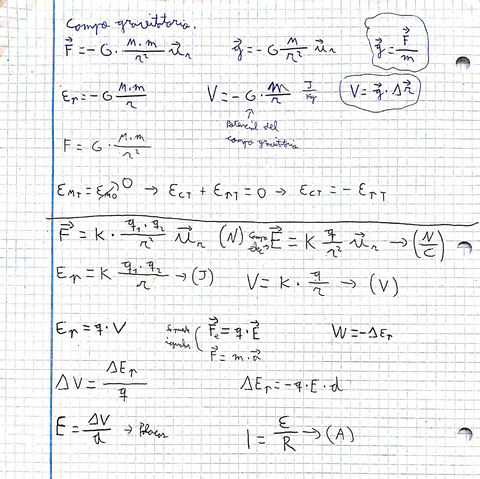 Campo gravitatorio.
F⃗ = -G · M·m/r² u⃗r   g⃗ = -G M/r² u⃗r   g⃗ = F⃗/m
Ep = -G · M·m/r   V = -G · m/r J/Kg   V = g⃗ · Δr⃗
↑
Potencial del
campo gravitatorio
F = G · M·m/r²
EMT = EM0 0 → ECT + EPT = 0 → ECT = -EPT
F⃗ = K · q1·q2/r² u⃗r (N) Campo eléc E⃗ = K q/r² u⃗r → (N/C)
Ep = K q1·q2/r → (J)   V = K · q/r → (V)
Ep = q · V   F⃗e = q · E⃗   W = -ΔEp
F⃗ = m · a⃗
ΔV = ΔEp/q   ΔEp = -q · E · d
E = ΔV/d → Placas   I = E/R → (A)